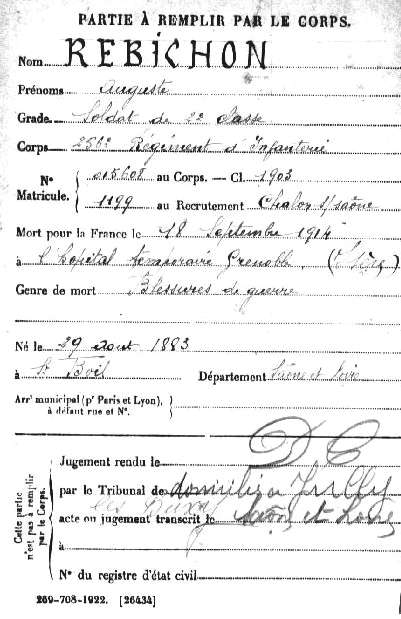 PARTIE À REMPLIR PAR LE CORPS.
Nom REBICHON
Prénoms Auguste
Grade Soldat de 2e Classe
Corps 256e Régiment d'Infanterie
N° Matricule. 005608 au Corps. — Cl. 1903
1199 au Recrutement Chalon s/ Saône
Mort pour la France le 18 Septembre 1914
à l'hôpital temporaire Grenoble (Isère)
Genre de mort Blessures de guerre
Né le 29 août 1883
à St Boil Département Saône et Loire
Arrᵗ municipal (pʳ Paris et Lyon), à défaut rue et N°.
Cette partie n'est pas à remplir par le Corps.
D C
Jugement rendu le
par le Tribunal de domicilié à
acte ou jugement transcrit le Saône et Loire
à
N° du registre d'état civil
269-708-1922. [26434]